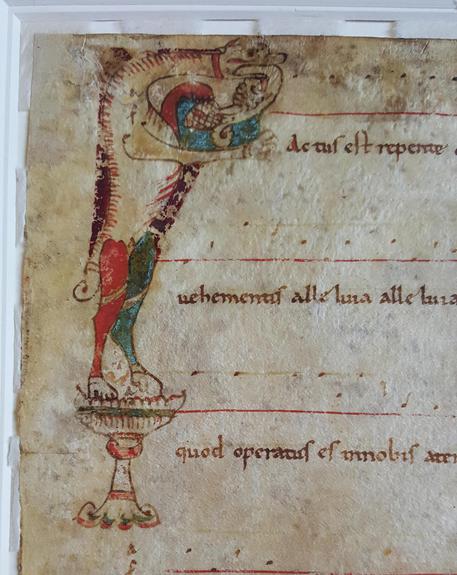 FActus est repente
uehementis alleluia alleluia
quod operatus es innobis